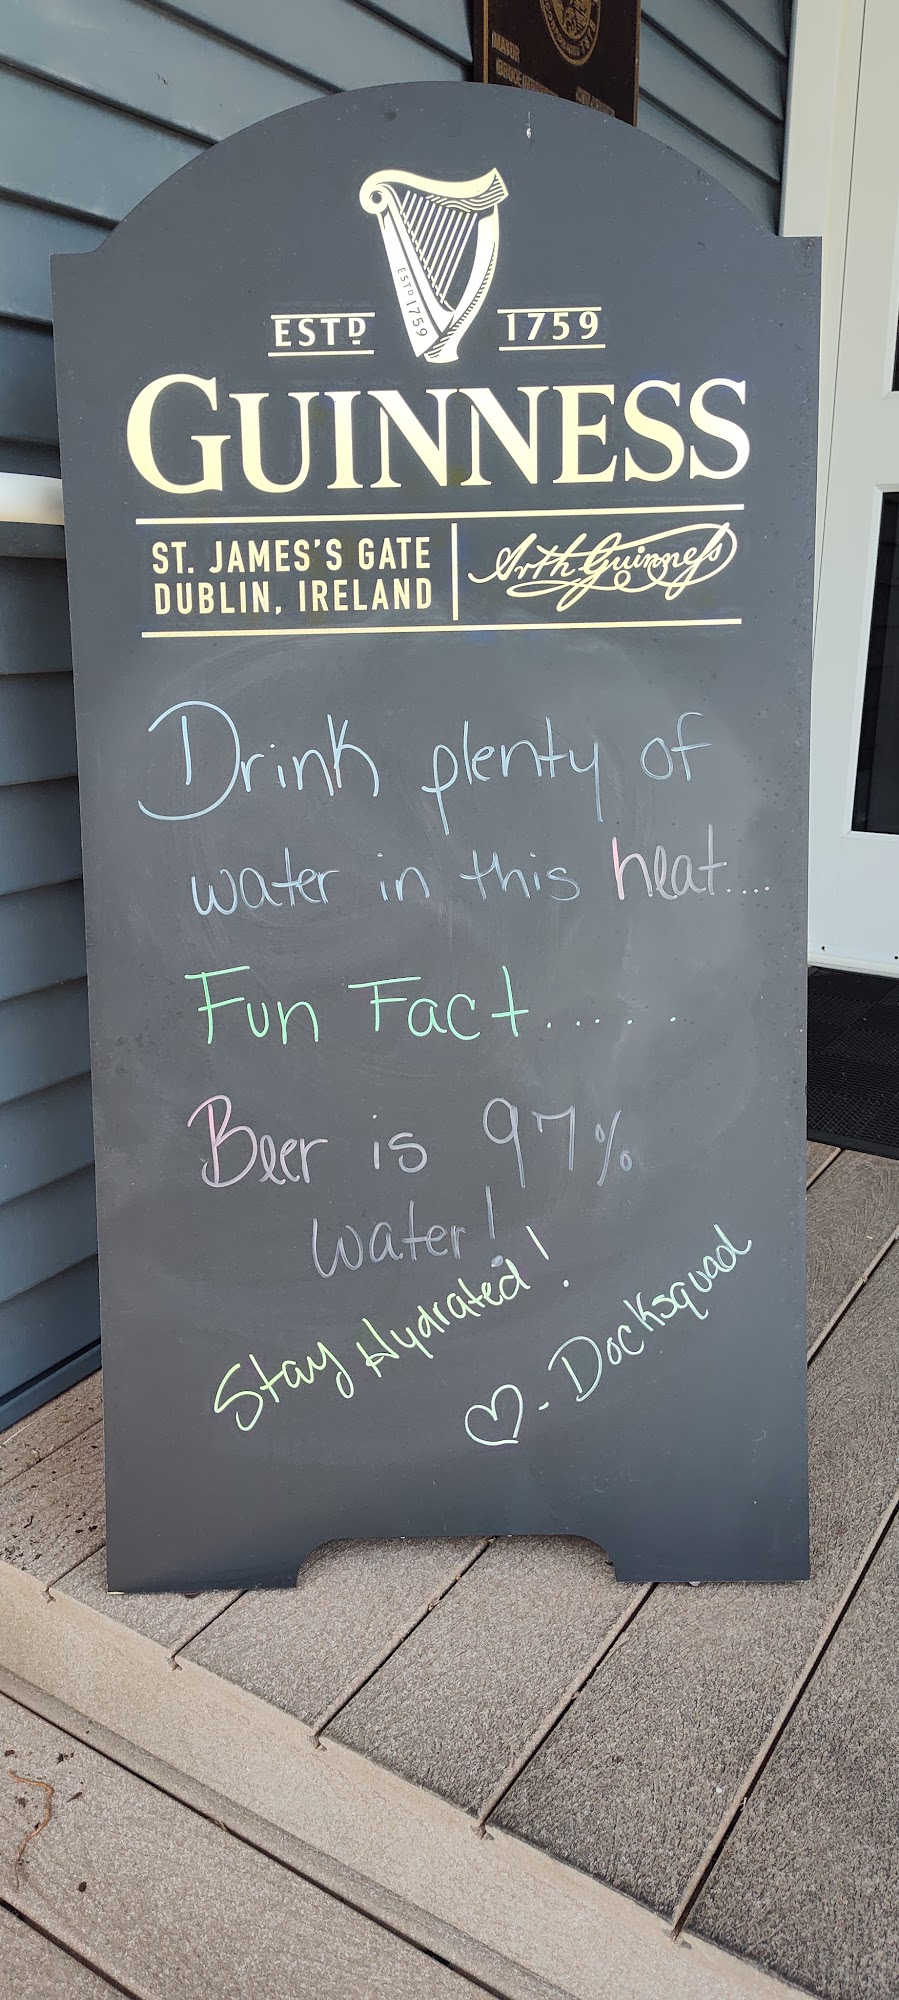 MAYOR
ESTD 1759
ESTD 1759
GUINNESS
ST. JAMES'S GATE
DUBLIN, IRELAND
Arth Guinness
Drink plenty of
water in this heat....
Fun Fact......
Beer is 97%
water!
Stay Hydrated!
♡-Docksquad